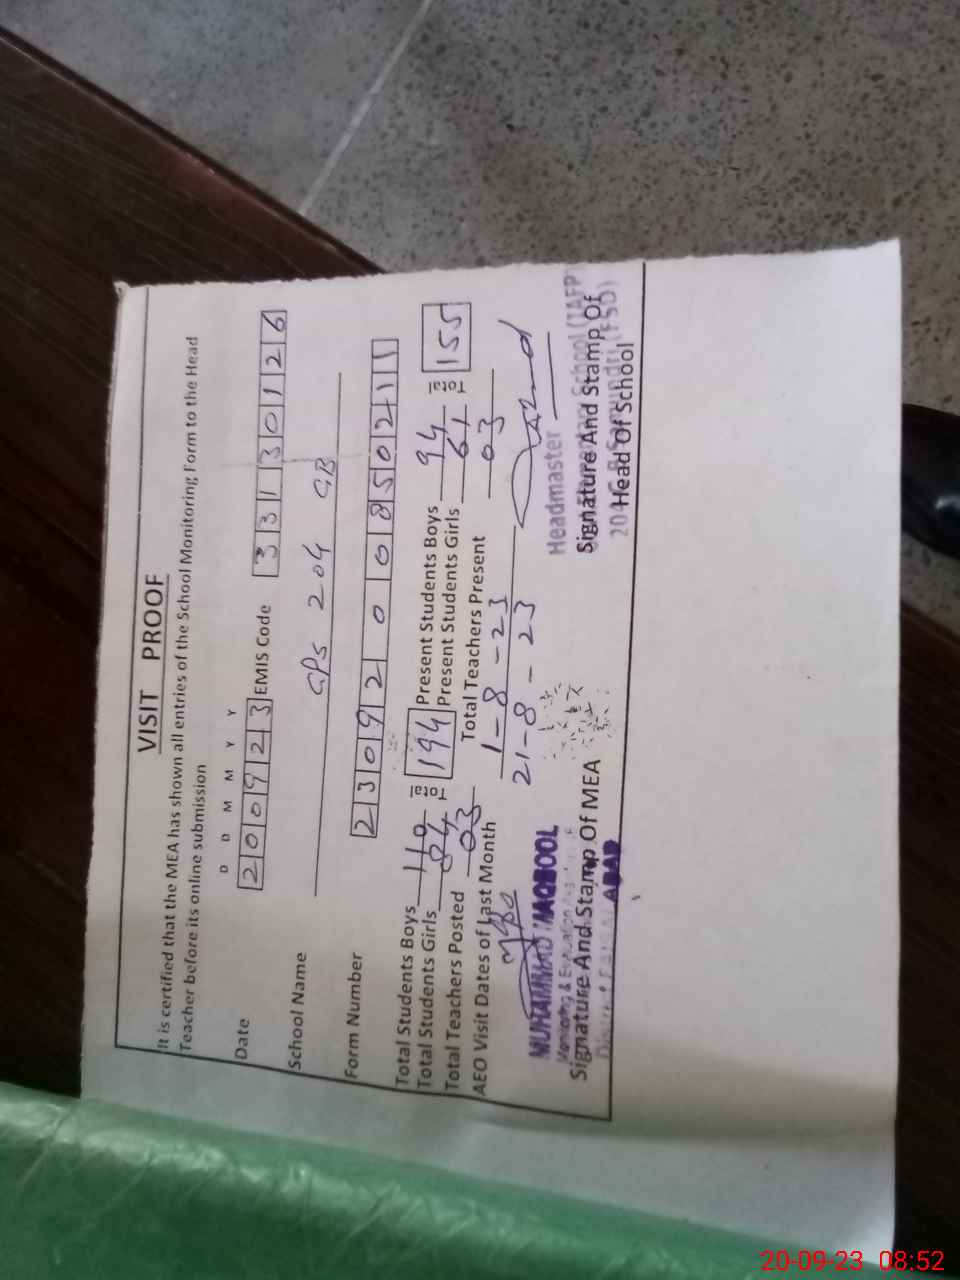 VISIT PROOF
It is certified that the MEA has shown all entries of the School Monitoring Form to the Head
Teacher before its online submission
D D M M Y Y
Date 200923 EMIS Code 33130126
School Name GPS 204 GB
Form Number 2309200850211
Total Students Boys 110 Total 194 Present Students Boys 94 Total 155
Total Students Girls 84 Present Students Girls 61
Total Teachers Posted 03 Total Teachers Present 03
AEO Visit Dates of Last Month 1-8-23
21-8-23
MUHAMMAD MAQBOOL
Monitoring & Evaluation
Signature And Stamp Of MEA
Headmaster
Elementary School
Signature And Stamp Of
204 (FSD)
Head Of School
20-09-23 08:52